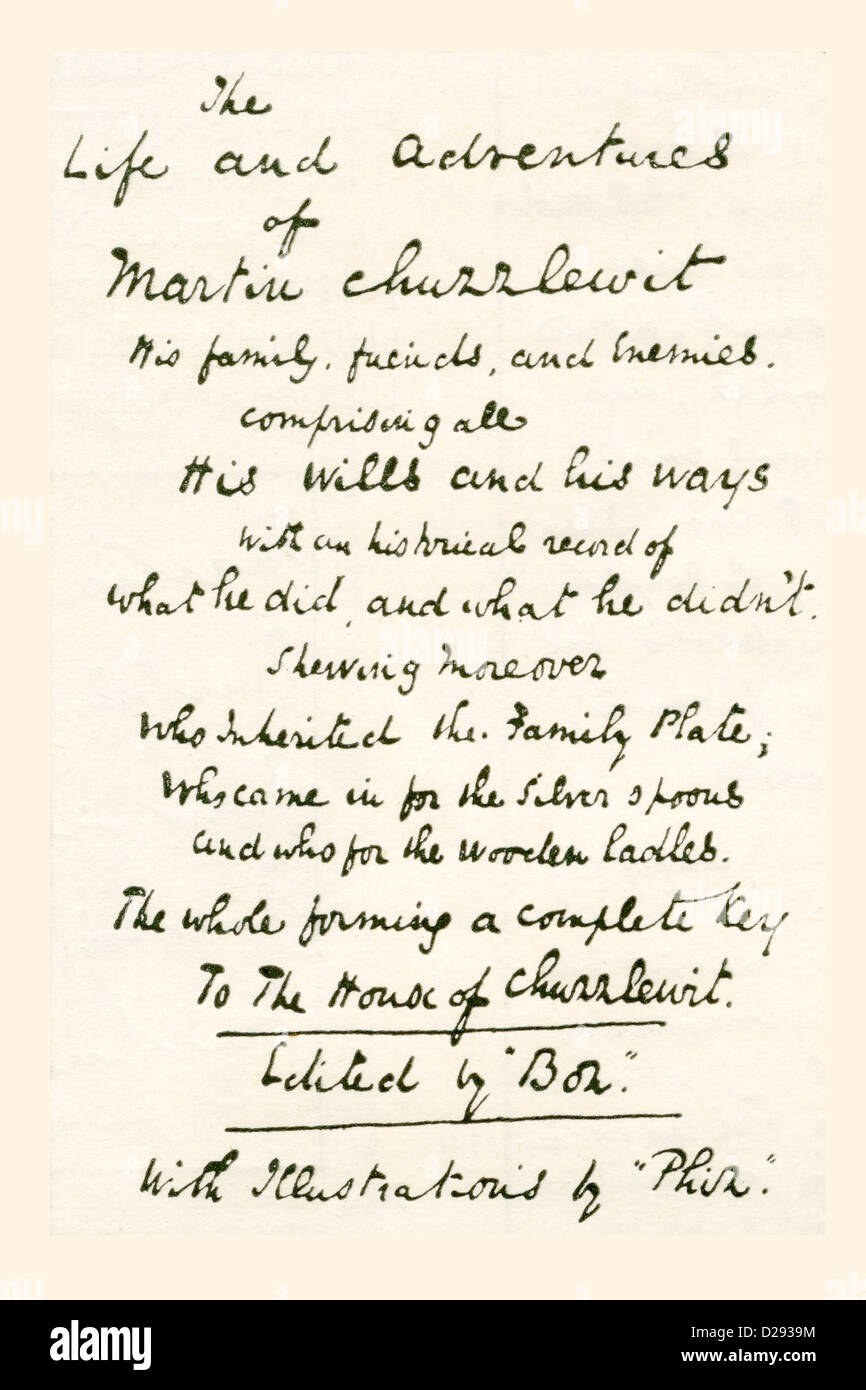 The
Life and Adventures
of
Martin Chuzzlewit
His family, friends, and Enemies.
comprising all
His Wills and his ways
With an historical record of
what he did, and what he didn't.
Shewing moreover
who Inherited the Family Plate;
Who came in for the Silver spoons
and who for the Wooden ladles.
The whole forming a complete Key
To The House of Chuzzlewit.
Edited by "Boz".
With Illustrations by "Phiz".
alamy
Image ID: D2939M
www.alamy.com